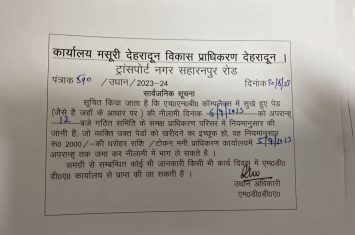 कार्यालय मसूरी देहरादून विकास प्राधिकरण देहरादून ।
ट्रांसपोर्ट नगर सहारनपुर रोड
पत्रांक 590 /उधान/2023-24 दिनांक 30/8/23
सार्वजनिक सूचना
सूचित किया जाता है कि एच०एन०बी० कॉम्पलैक्स में सूखे हुए पेड
(जैसे है जहाँ के आधार पर) की नीलामी दिनांक 6/9/2023 को अपरान्ह
12 बजे गठित समिति के समक्ष प्राधिकरण परिसर में नियमानुसार की
जानी है, जो व्यक्ति उक्त पेडों को खरीदने का इच्छुक हो, वह नियमानुसार
रू0 2000/-की धरोहर राशि / टोकन मनी प्राधिकरण कार्यालयमें 5/9/2023
अपरान्ह तक जमा कर नीलामी में भाग ले सकते है ।
समग्री से सम्बन्धित कोई भी जानकारी किसी भी कार्य दिवस में एम०डी०
डी०ए० कार्यालय से प्राप्त की जा सकती है ।
उधान अधिकारी
एम०डी०डी०ए०